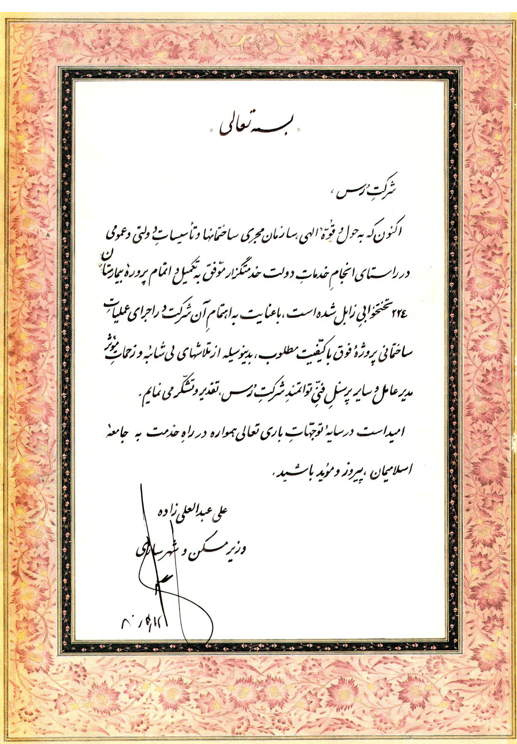 بسمه تعالی
شرکت رس ،
اکنون که به حول و قوّهٔ الهی سازمان مجری ساختمانها و تأسیسات دولتی و عمومی
در راستای انجام خدمات دولت خدمتگزار موفق به تکمیل و اتمام پروژهٔ بیمارستان
۲۲٤ تختخوابی زابل شده است ، با عنایت به اهتمام آن شرکت در اجرای عملیات
ساختمانی پروژهٔ فوق با کیفیت مطلوب ، بدینوسیله از تلاشهای بی شائبه و زحمات مؤثر
مدیر عامل و سایر پرسنل فنّی توانمند شرکت رس ، تقدیر و تشکّر می نمایم .
امید است در سایهٔ توجهات باری تعالی همواره در راه خدمت به جامعهٔ
اسلامیمان ، پیروز و مؤید باشید .
علی عبدالعلی زاده
وزیر مسکن و شهرسازی